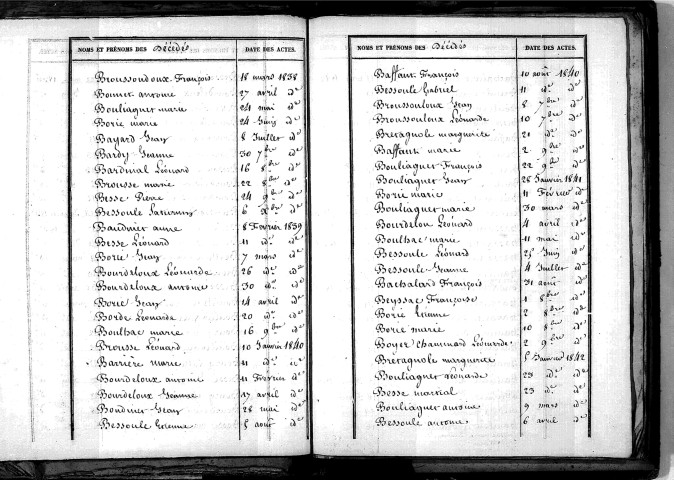 NOMS ET PRÉNOMS DES Décédés DATE DES ACTES.
Broussoudoux François 18 mars 1838
Bonnet antoine 27 avril de
Bouliaguet marie 24 mai de
Borie marie 24 Juin de
Bayard Jean 8 Juillet de
Bardy Jeanne 30 7bre de
Bardinal Léonard 16 8bre de
Brousse marie 22 8bre de
Besse Pierre 24 9bre de
Bessoule 6 Xbre de
Baudnier anne 8 Février 1839
Besse Léonard 11 de de
Borie Jean 7 mars de
Bourdeloux Léonarde 26 de de
Bourdeloux antoine 30 de de
Borie Jean 14 avril de
Borde Léonarde 20 de de
Boulhac marie 16 9bre de
Brousse Léonard 10 Janvier 1840
Barrière marie 11 de de
Bourdeloux antoine 11 Février de
Bourdeloux Jeanne 17 avril de
Boudrier Jean 28 mai de
Bessoule Etienne 5 août de
NOMS ET PRÉNOMS DES Décédés DATE DES ACTES.
Baffaut François 10 août 1840
Bessoule Gabriel 11 de de
Broussouloux Jean 8 7bre de
Broussouloux Léonarde 10 7bre de
Bretagnole marguerite 21 de de
Baffaut marie 2 9bre de
Bouliaguet François 22 9bre de
Bouliaguet Jean 28 Janvier 1841
Borie marie 11 Février de
Bouliaguet marie 30 mars de
Bourdelon Léonard 4 avril de
Boulhac marie 11 mai de
Bessoule Léonard 25 Juin de
Bessoule Jeanne 4 Juillet de
Bachalard François 31 août de
Beyssac Françoise 1 8bre de
Borie Etienne 2 8bre de
Borie marie 10 8bre de
Boyer Chaminard Léonarde 2 9bre de
Bretagnole marguerite 5 Janvier 1842
Bouliaguet Léonarde 23 de de
Besse martial 23 de de
Bouliaguet antoine 9 mars de
Bessoule antoine 6 avril de